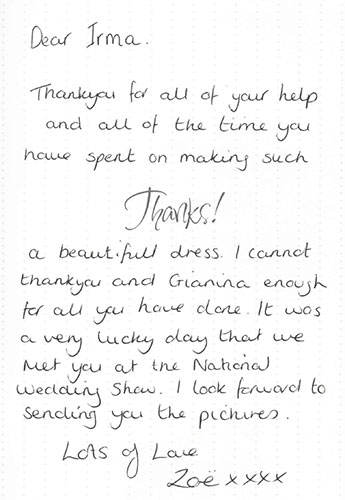 Dear Irma.
Thankyou for all of your help
and all of the time you
have spent on making such
Thanks!
a beautifull dress. I cannot
thankyou and Gianina enough
for all you have done. It was
a very lucky day that we
met you at the National
Wedding Show. I look forward to
sending you the pictures.
Lots of Love
Zoë xxxx